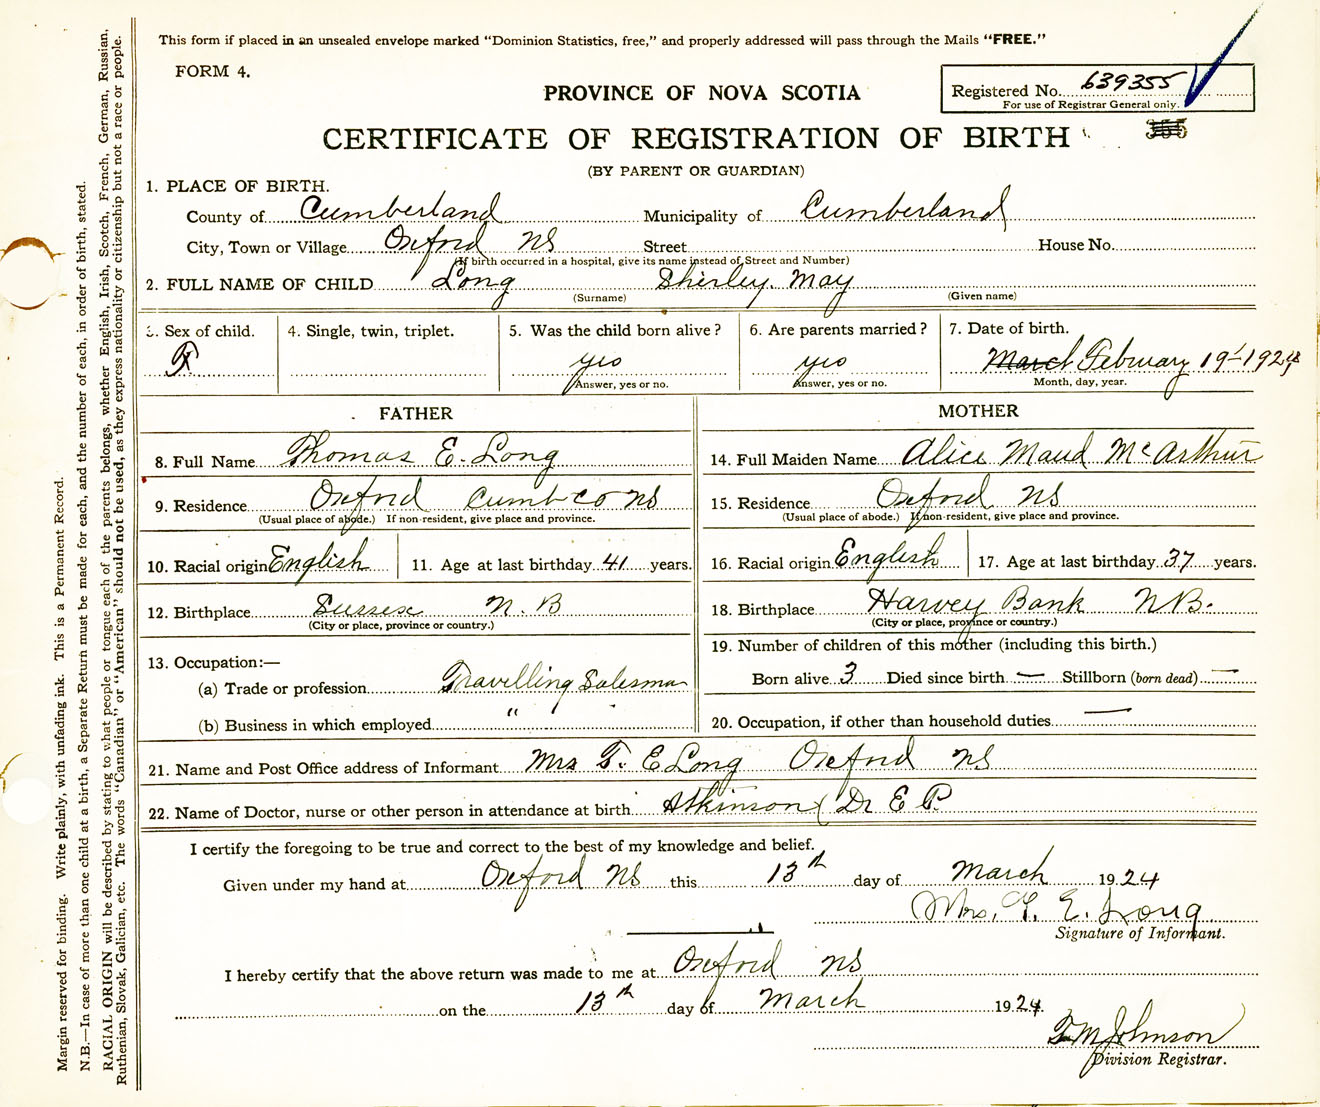 This form if placed in an unsealed envelope marked “Dominion Statistics, free,” and properly addressed will pass through the Mails “FREE.”
FORM 4.
Registered No. 639355
For use of Registrar General only.
355
PROVINCE OF NOVA SCOTIA
CERTIFICATE OF REGISTRATION OF BIRTH
(BY PARENT OR GUARDIAN)
1. PLACE OF BIRTH.
County of Cumberland Municipality of Cumberland
City, Town or Village Oxford NS Street House No.
(If birth occurred in a hospital, give its name instead of Street and Number)
2. FULL NAME OF CHILD Long Shirley May
(Surname) (Given name)
3. Sex of child. 4. Single, twin, triplet. 5. Was the child born alive? 6. Are parents married? 7. Date of birth.
F yes yes March February 19 1924
Answer, yes or no. Answer, yes or no. Month, day, year.
FATHER
8. Full Name Thomas E. Long
9. Residence Oxford Cumb co NS
(Usual place of abode.) If non-resident, give place and province.
10. Racial origin English 11. Age at last birthday 41 years.
12. Birthplace Sussex N. B
(City or place, province or country.)
13. Occupation:—
(a) Trade or profession Travelling Salesman
(b) Business in which employed "
MOTHER
14. Full Maiden Name Alice Maud McArthur
15. Residence Oxford NS
(Usual place of abode.) If non-resident, give place and province.
16. Racial origin English 17. Age at last birthday 37 years.
18. Birthplace Harvey Bank NB.
(City or place, province or country.)
19. Number of children of this mother (including this birth.)
Born alive 3 Died since birth — Stillborn (born dead) —
20. Occupation, if other than household duties —
21. Name and Post Office address of Informant Mrs T. E Long Oxford NS
22. Name of Doctor, nurse or other person in attendance at birth Atkinson (Dr E P
I certify the foregoing to be true and correct to the best of my knowledge and belief.
Given under my hand at Oxford NS this 13th day of March 1924
Mrs. T. E. Long
Signature of Informant.
I hereby certify that the above return was made to me at Oxford NS
on the 13th day of March 1924.
T M Johnson
Division Registrar.
Margin reserved for binding. Write plainly, with unfading ink. This is a Permanent Record.
N.B.—In case of more than one child at a birth, a Separate Return must be made for each, and the number of each, in order of birth, stated.
RACIAL ORIGIN will be described by stating to what people or tongue each of the parents belongs, whether English, Irish, Scotch, French, German, Russian,
Ruthenian, Slovak, Galician, etc. The words “Canadian” or “American” should not be used, as they express nationality or citizenship but not a race or people.